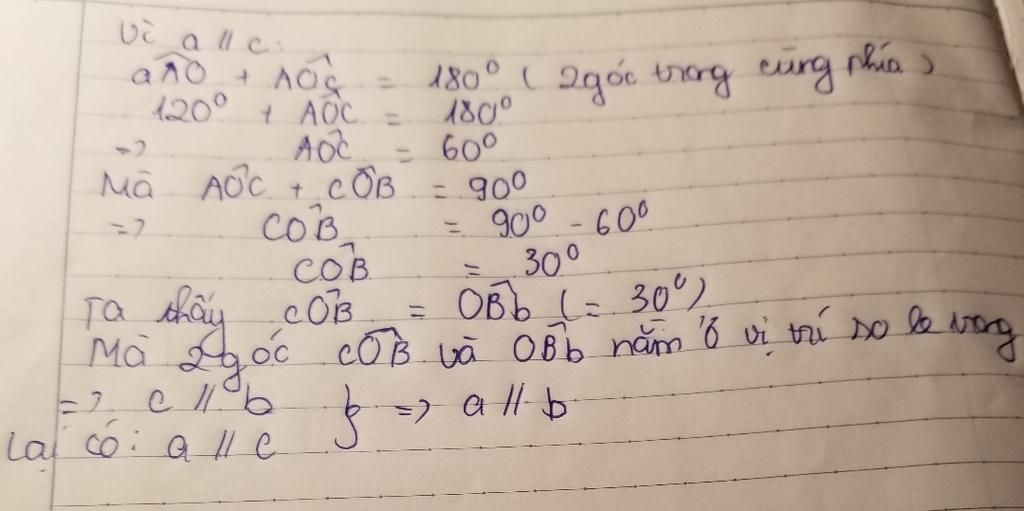 Vì a // c:
aÂO + AÔc = 180⁰ ( 2 góc trong cùng phía )
120⁰ + AÔC = 180⁰
=> AÔC = 60⁰
Mà AÔC + CÔB = 90⁰
=> CÔB = 90⁰ - 60⁰
CÔB = 30⁰
Ta thấy cÔB = OB̂b (= 30⁰)
Mà 2 góc cÔB và OB̂b nằm ở vị trí so le trong
=> c // b } => a // b
Lại có: a // c